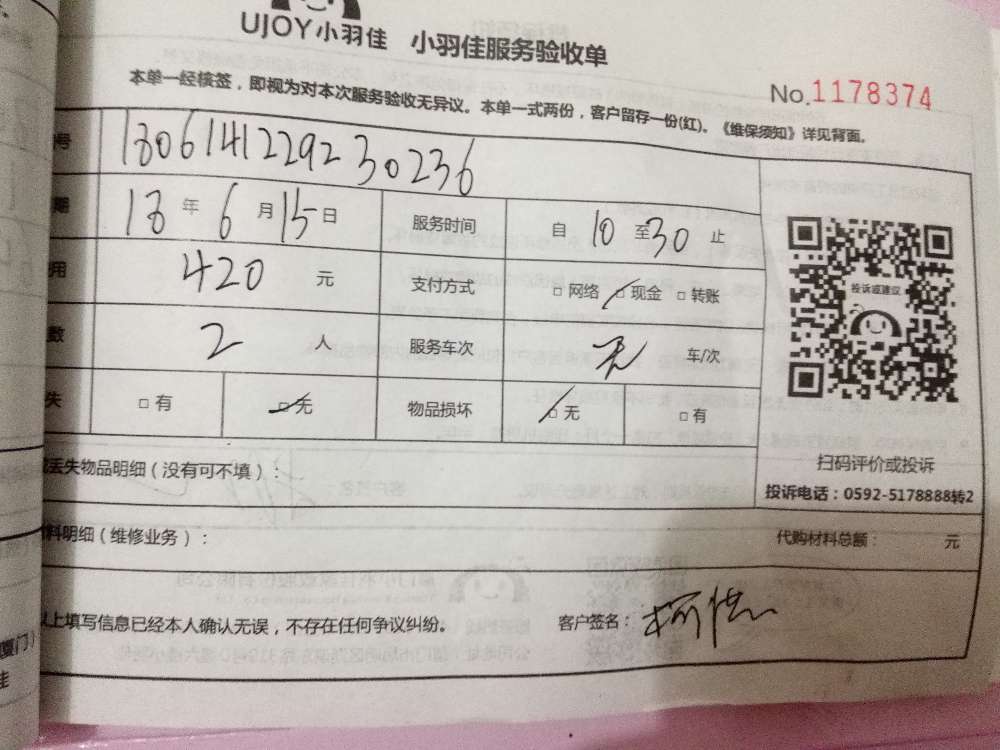 UJOY小羽佳 小羽佳服务验收单
No.1178374
本单一经核签，即视为对本次服务验收无异议。本单一式两份，客户留存一份(红)。《维保须知》详见背面。
号 1806141229230236
期 18 年 6 月 15 日 服务时间 自 10 至 30 止
用 420 元 支付方式 □ 网络 □ 现金 □ 转账
数 2 人 服务车次 无 车/次
失 □ 有 □ 无 物品损坏 □ 无 □ 有
投诉或建议
扫码评价或投诉
投诉电话：0592-5178888转2
丢失物品明细（没有可不填）：
料明细（维修业务）： 代购材料总额： 元
以上填写信息已经本人确认无误，不存在任何争议纠纷。 客户签名：
厦门）
佳